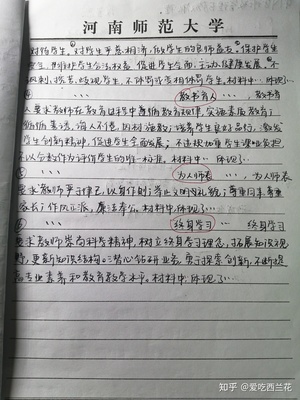 河南师范大学
对待学生,对学生严慈相济,做学生的良师益友。保护学生
安全,关心学生健康,促进学生全面、主动、健康发展。不
讽刺、挖苦、歧视学生,不体罚或变相体罚学生。材料中…体现了…
④ 教书育人… …教书育
人要求教师在教育过程中遵循教育规律,实施素质教育;
循循善诱,诲人不倦,因材施教;培养学生良好品行,激发
学生创新精神,促进学生全面发展;不
以分数作为评价学生的唯一标准。材料中…体现了…
⑤ 为人师表… …为人师表
要求教师严于律己,以身作则;语言文明礼貌;尊重同事,尊重
家长;作风正派,廉洁奉公。材料中体现了…
⑥ 终身学习… …终身学习
要求教师崇尚科学精神,树立终身学习理念,拓宽知识视
野,更新知识结构;潜心钻研业务,勇于探索创新,不断提
高专业素养和教育教学水平。材料中…体现了…
知乎 @爱吃西兰花